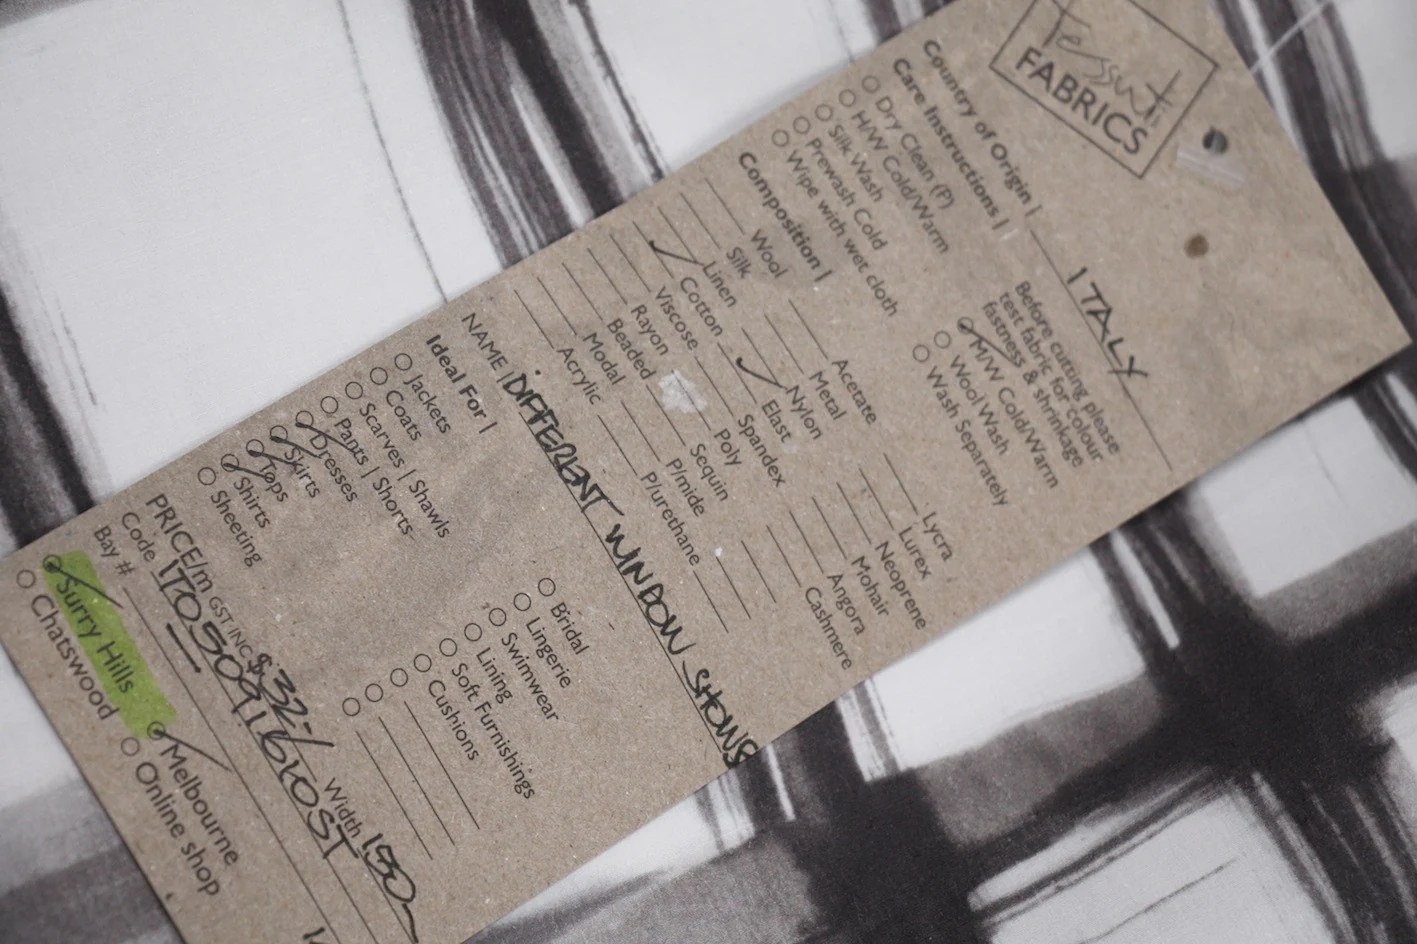 Tessuti
FABRICS
Country of Origin | ITALY
Care Instructions |
Dry Clean (P)
H/W Cold/Warm
Silk Wash
Prewash Cold
Wipe with wet cloth
Before cutting please
test fabric for colour
fastness & shrinkage
M/W Cold/Warm
Wool Wash
Wash Separately
Composition |
Wool
Silk
Linen
Cotton
Viscose
Rayon
Beaded
Modal
Acrylic
Acetate
Metal
Nylon
Elast
Spandex
Poly
Sequin
P/mide
P/urethane
Lycra
Lurex
Neoprene
Mohair
Angora
Cashmere
NAME | DIFFERENT WINDOW SHOWS
Ideal For |
Jackets
Coats
Scarves | Shawls
Pants | Shorts
Dresses
Skirts
Tops
Shirts
Sheeting
Bridal
Lingerie
Swimwear
Lining
Soft Furnishings
Cushions
PRICE/m GST INC $32- Width 150
Code
Bay #
Surry Hills
Chatswood
Melbourne
Online shop